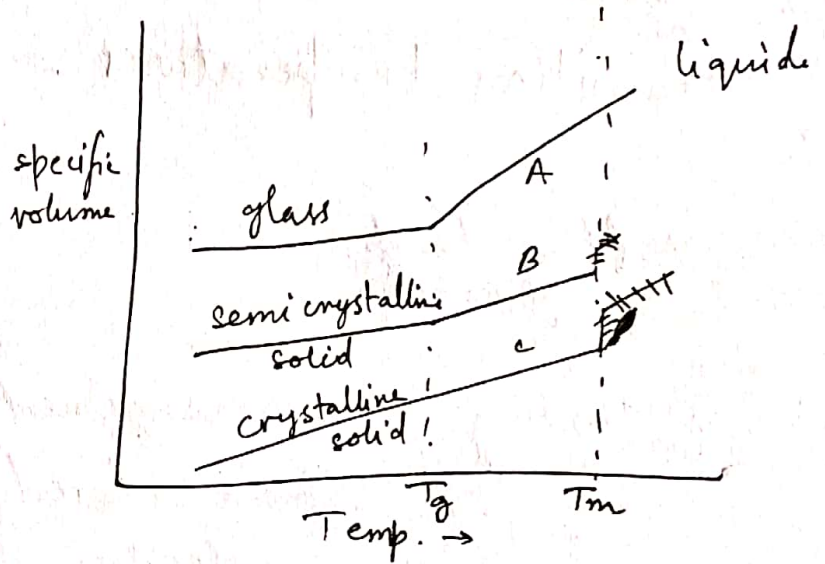 liquid
specific
volume
glass
A
B
semi crystalline
solid
c
crystalline
solid!
Tg
Tm
Temp. →